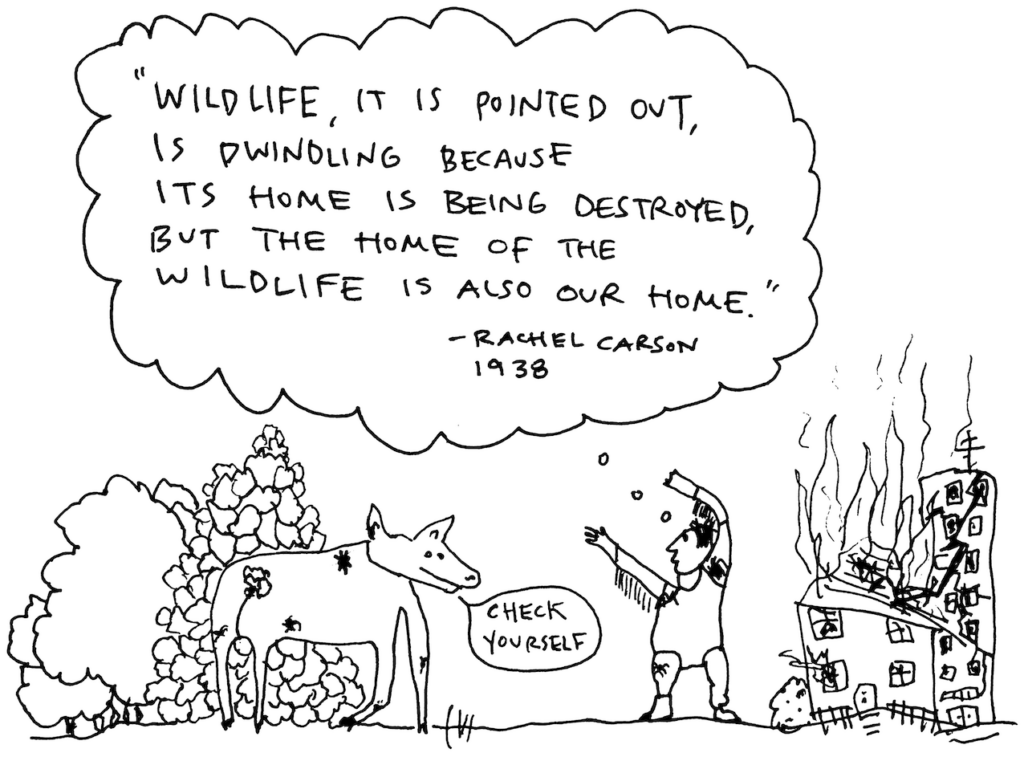 "WILDLIFE, IT IS POINTED OUT,
IS DWINDLING BECAUSE
ITS HOME IS BEING DESTROYED,
BUT THE HOME OF THE
WILDLIFE IS ALSO OUR HOME."
- RACHEL CARSON
1938
CHECK
YOURSELF